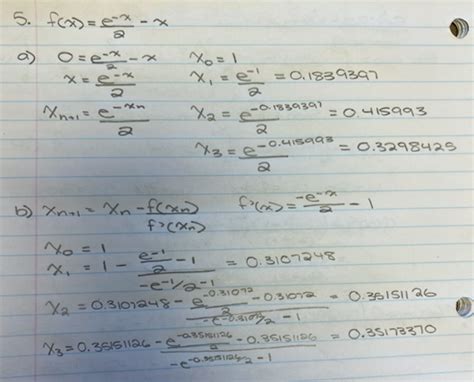 5. f(x) = e^-x/2 - x
a) 0 = e^-x/2 - x   x₀ = 1
x = e^-x/2   x₁ = e^-1/2 = 0.1839397
xₙ₊₁ = e^-xₙ/2   x₂ = e^-0.1839397/2 = 0.415993
x₃ = e^-0.415993/2 = 0.3298425
b) xₙ₊₁ = xₙ - f(xₙ)/f'(xₙ)   f'(x) = -e^-x/2 - 1
x₀ = 1
x₁ = 1 - (e^-1/2 - 1)/(-e^-1/2 - 1) = 0.3107248
x₂ = 0.3107248 - (e^-0.31072/2 - 0.31072)/(-e^-0.31072/2 - 1) = 0.35151126
x₃ = 0.35151126 - (e^-0.35151126/2 - 0.35151126)/(-e^-0.35151126/2 - 1) = 0.35173370